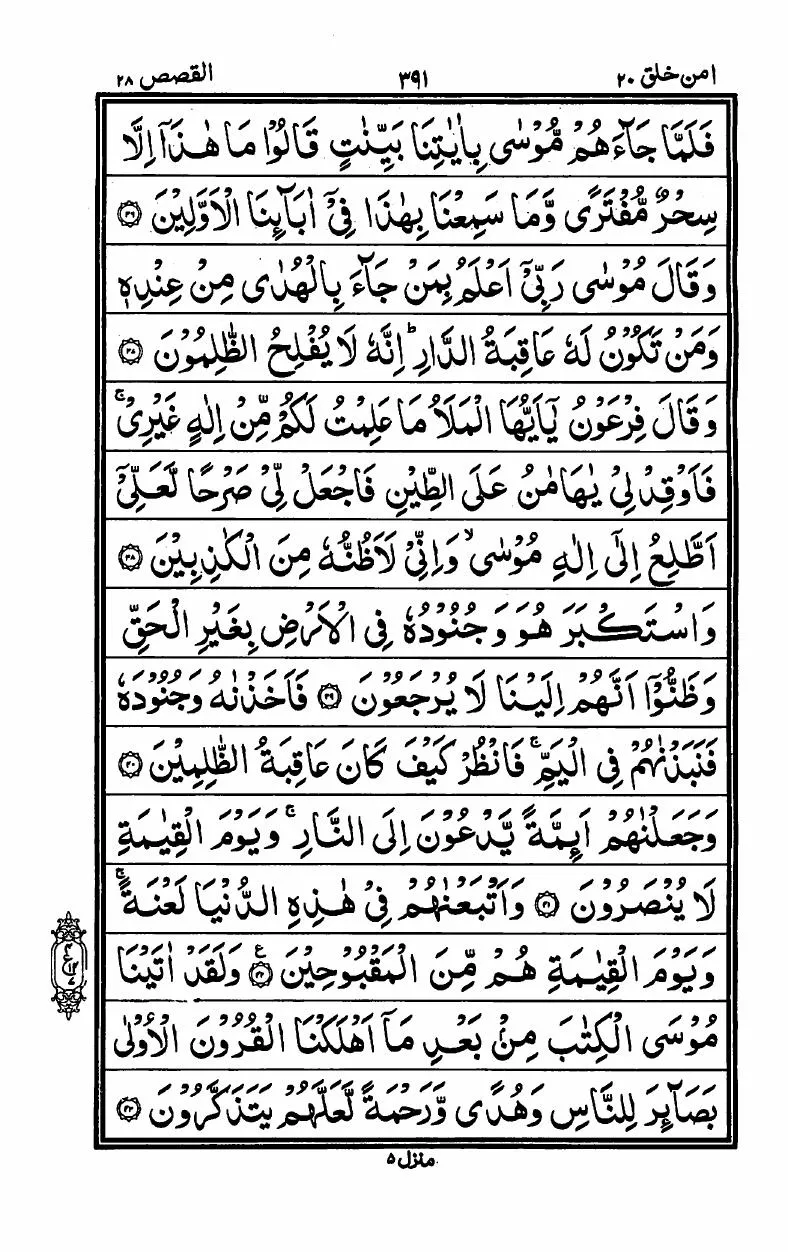 امن خلق ۲۰
۳۹۱
القصص ۲۸
فَلَمَّا جَآءَهُمْ مُّوْسٰى بِاٰيٰتِنَا بَيِّنٰتٍ قَالُوْا مَا هٰذَآ اِلَّا
سِحْرٌ مُّفْتَرًى وَّمَا سَمِعْنَا بِهٰذَا فِيْٓ اٰبَآئِنَا الْاَوَّلِيْنَ ۝۳۶
وَقَالَ مُوْسٰى رَبِّيْٓ اَعْلَمُ بِمَنْ جَآءَ بِالْهُدٰى مِنْ عِنْدِهٖ
وَمَنْ تَكُوْنُ لَهٗ عَاقِبَةُ الدَّارِ ؕ اِنَّهٗ لَا يُفْلِحُ الظّٰلِمُوْنَ ۝۳۷
وَقَالَ فِرْعَوْنُ يٰٓاَيُّهَا الْمَلَاُ مَا عَلِمْتُ لَكُمْ مِّنْ اِلٰهٍ غَيْرِيْ ۚ
فَاَوْقِدْ لِيْ يٰهَامٰنُ عَلَى الطِّيْنِ فَاجْعَلْ لِّيْ صَرْحًا لَّعَلِّيْٓ
اَطَّلِعُ اِلٰٓى اِلٰهِ مُوْسٰى ۙ وَاِنِّيْ لَاَظُنُّهٗ مِنَ الْكٰذِبِيْنَ ۝۳۸
وَاسْتَكْبَرَ هُوَ وَجُنُوْدُهٗ فِي الْاَرْضِ بِغَيْرِ الْحَقِّ
وَظَنُّوْٓا اَنَّهُمْ اِلَيْنَا لَا يُرْجَعُوْنَ ۝۳۹ فَاَخَذْنٰهُ وَجُنُوْدَهٗ
فَنَبَذْنٰهُمْ فِي الْيَمِّ ۚ فَانْظُرْ كَيْفَ كَانَ عَاقِبَةُ الظّٰلِمِيْنَ ۝۴۰
وَجَعَلْنٰهُمْ اَئِمَّةً يَّدْعُوْنَ اِلَى النَّارِ ۚ وَيَوْمَ الْقِيٰمَةِ
لَا يُنْصَرُوْنَ ۝۴۱ وَاَتْبَعْنٰهُمْ فِيْ هٰذِهِ الدُّنْيَا لَعْنَةً ۚ
وَيَوْمَ الْقِيٰمَةِ هُمْ مِّنَ الْمَقْبُوْحِيْنَ ۝۴۲ وَلَقَدْ اٰتَيْنَا
مُوْسَى الْكِتٰبَ مِنْۢ بَعْدِ مَآ اَهْلَكْنَا الْقُرُوْنَ الْاُوْلٰى
بَصَآئِرَ لِلنَّاسِ وَهُدًى وَّرَحْمَةً لَّعَلَّهُمْ يَتَذَكَّرُوْنَ ۝۴۳
منزل ۵